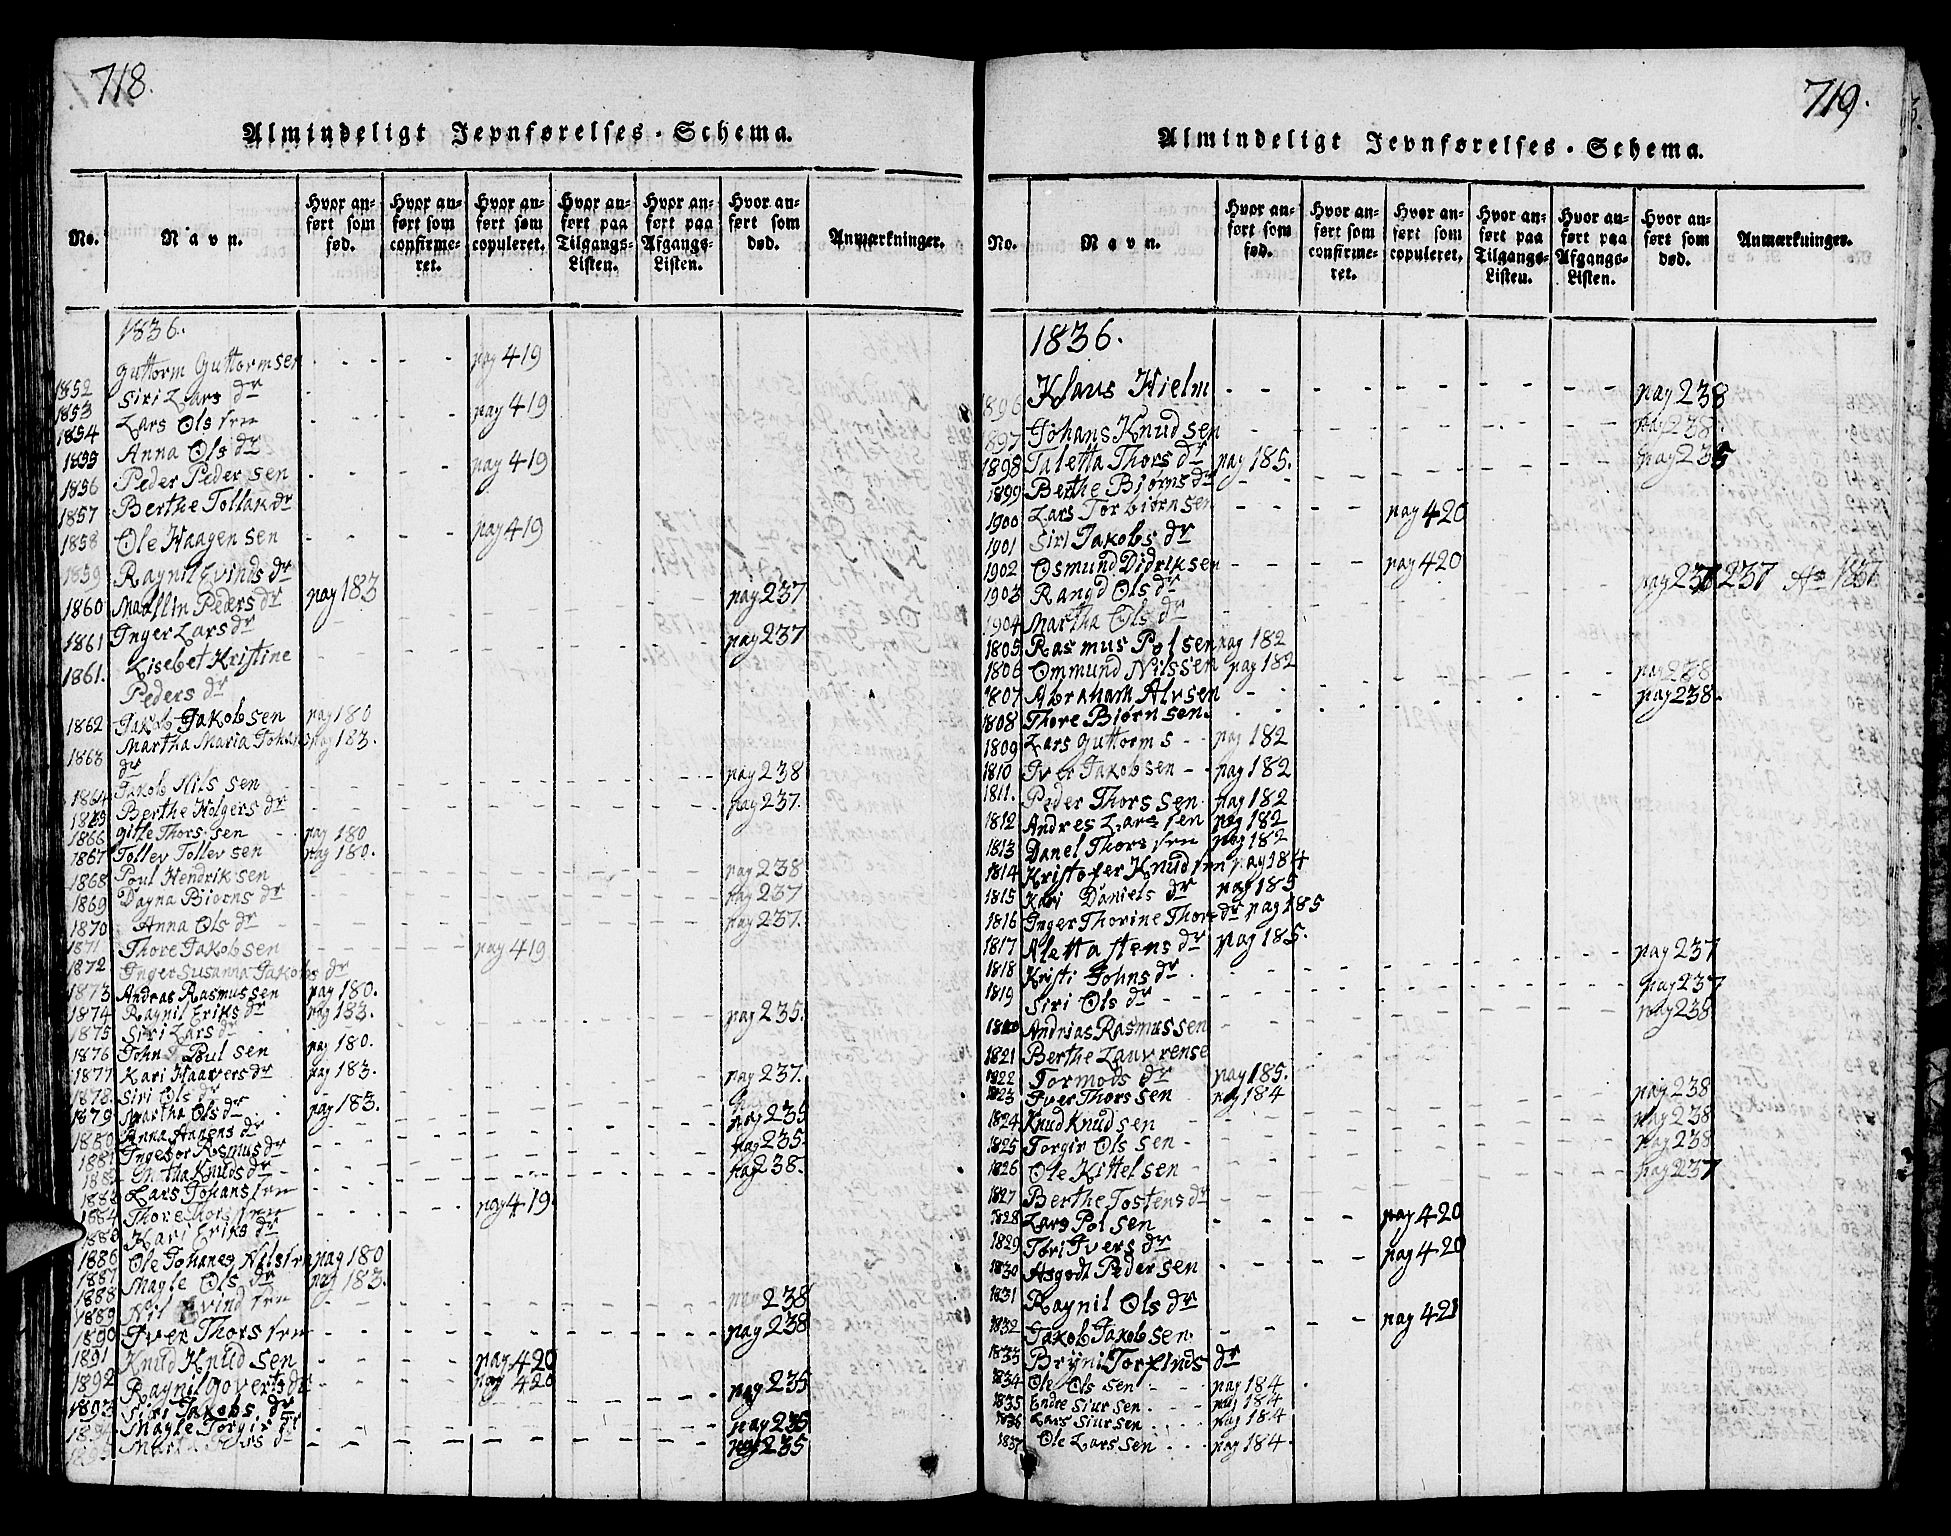 718.
Almindeligt Jevnførelses-Schema.
No. Navn. Hvor anført som fød. Hvor anført som confirmeret. Hvor anført som copuleret. Hvor anført paa Tilgangs-Listen. Hvor anført paa Afgangs-Listen. Hvor anført som død. Anmærkninger.
1836.
Guttorm Guttormsen pag 419
1852 Siri Lars dr
1853 Lars Olssen pag 419
1854 Anna Ols dr
1855 Peder Pedersen pag 419
1856 Berthe Tollak dr
1857 Ole Haagensen pag 419
1858
1859 Ragnil Evinds dr pag 183
1860 Mallin Peders dr pag 237
1861 Inger Lars dr pag 237
1861. Lisebet Kristine
Peders dr
1862 Jakob Jakobsen pag 180
1863 Martha Maria Johans pag 183.
dr
1864 Jakob Nilssen pag 238
1865 Berthe Holgers dr pag 237.
1866 Gitle Thorssen pag 180
1867 Tollev Tollevsen pag 180.
1868 Poul Hendriksen pag 238
1869 Dagna Biørns dr pag 237
1870 Anna Ols dr pag 237.
1871 Thore Jakobsen pag 419
1872 Inger Susanna Jakobs dr
1873 Andras Rasmussen pag 180.
1874 Ragnil Eriks dr pag 183.
1875 Siri Lars dr pag 235.
1876 John Poulsen pag 180.
1877 Kari Haavers dr pag 183.
1878 Siri Ols dr pag 237.
1879 Martha Ols dr pag 183.
1880 Anna Aanens dr pag 235
1881 Ingebor Rasmus dr pag 235.
1882 Knuds dr pag 238.
1883 Lars Johanssen
1884 Thore Thorssen pag 419.
1885 Kari Eriks dr
1886 Ole Johanes Nilssen pag 180
1887 Magle Ols dr pag 183.
1888
1889 Nil Evindssen pag 238
1890 Iver Thorssen pag 238
1891 Knud Knudsen pag 420
1892 Ragnil Goverts dr pag 420
1893 Siri Jakobs dr pag 235
Magle Torgirs dr pag 235
pag 235
719.
Almindeligt Jevnførelses-Schema.
No. Navn. Hvor anført som fød. Hvor anført som confirmeret. Hvor anført som copuleret. Hvor anført paa Tilgangs-Listen. Hvor anført paa Afgangs-Listen. Hvor anført som død. Anmærkninger.
1836.
1896 Klaus Hielm pag 238
1897 Johans Knudsen pag 238.
1898 Taletta Thors dr pag 185.
1899 Berthe Biørns dr pag 235
1900 Lars Torbiørnsen pag 420
1901 Siri Jakobs dr
1902 Osmund Didriksen pag 420
1903 Rangd Ols dr pag 237 237 Ao 1837
1904 Martha Ols dr
1805 Rasmus Polsen pag 182
1806 Ommund Nilssen pag 182
1807 Abraham Alvsen pag 238
1808 Thore Biørnsen. pag 238.
1809 Lars Guttorms pag 182
1810 Iver Jakobsen pag 182
1811. Peder Thorssen pag 182
1812 Andres Larssen pag 182
1813 Danel Thorssen pag 182
1814 Kristofer Knudsen pag 184
1815 Kari Daniels dr pag 185
1816 Inger Thorine Thors dr pag 185
1817 Aletta Stens dr pag 185.
1818 Kristi Johns dr pag 237
1819 Siri Ols dr pag 237
1820 Andrias Rasmussen pag 238
1821 Berthe Lauvrense
1822 Tormods dr pag 185.
1823 Iver Thorssen pag 184
1824 Knud Knudsen pag 238
1825 Torgir Olssen pag 238
1826 Ole Kittelsen pag 238
1827 Berthe Tostens dr pag 237
1828 Lars Polsen pag 420
1829 Tori Ivers dr
1830 Asgodt Pedersen pag 420
1831 Ragnil Ols dr
1832 Jakob Jakobsen. pag 421
1833 Brynil Torkinds dr
1834 Ole Olssen pag 184
1835 Endre Siursen pag 184
1836 Lars Siursen pag 184
1837 Ole Larssen pag 184.